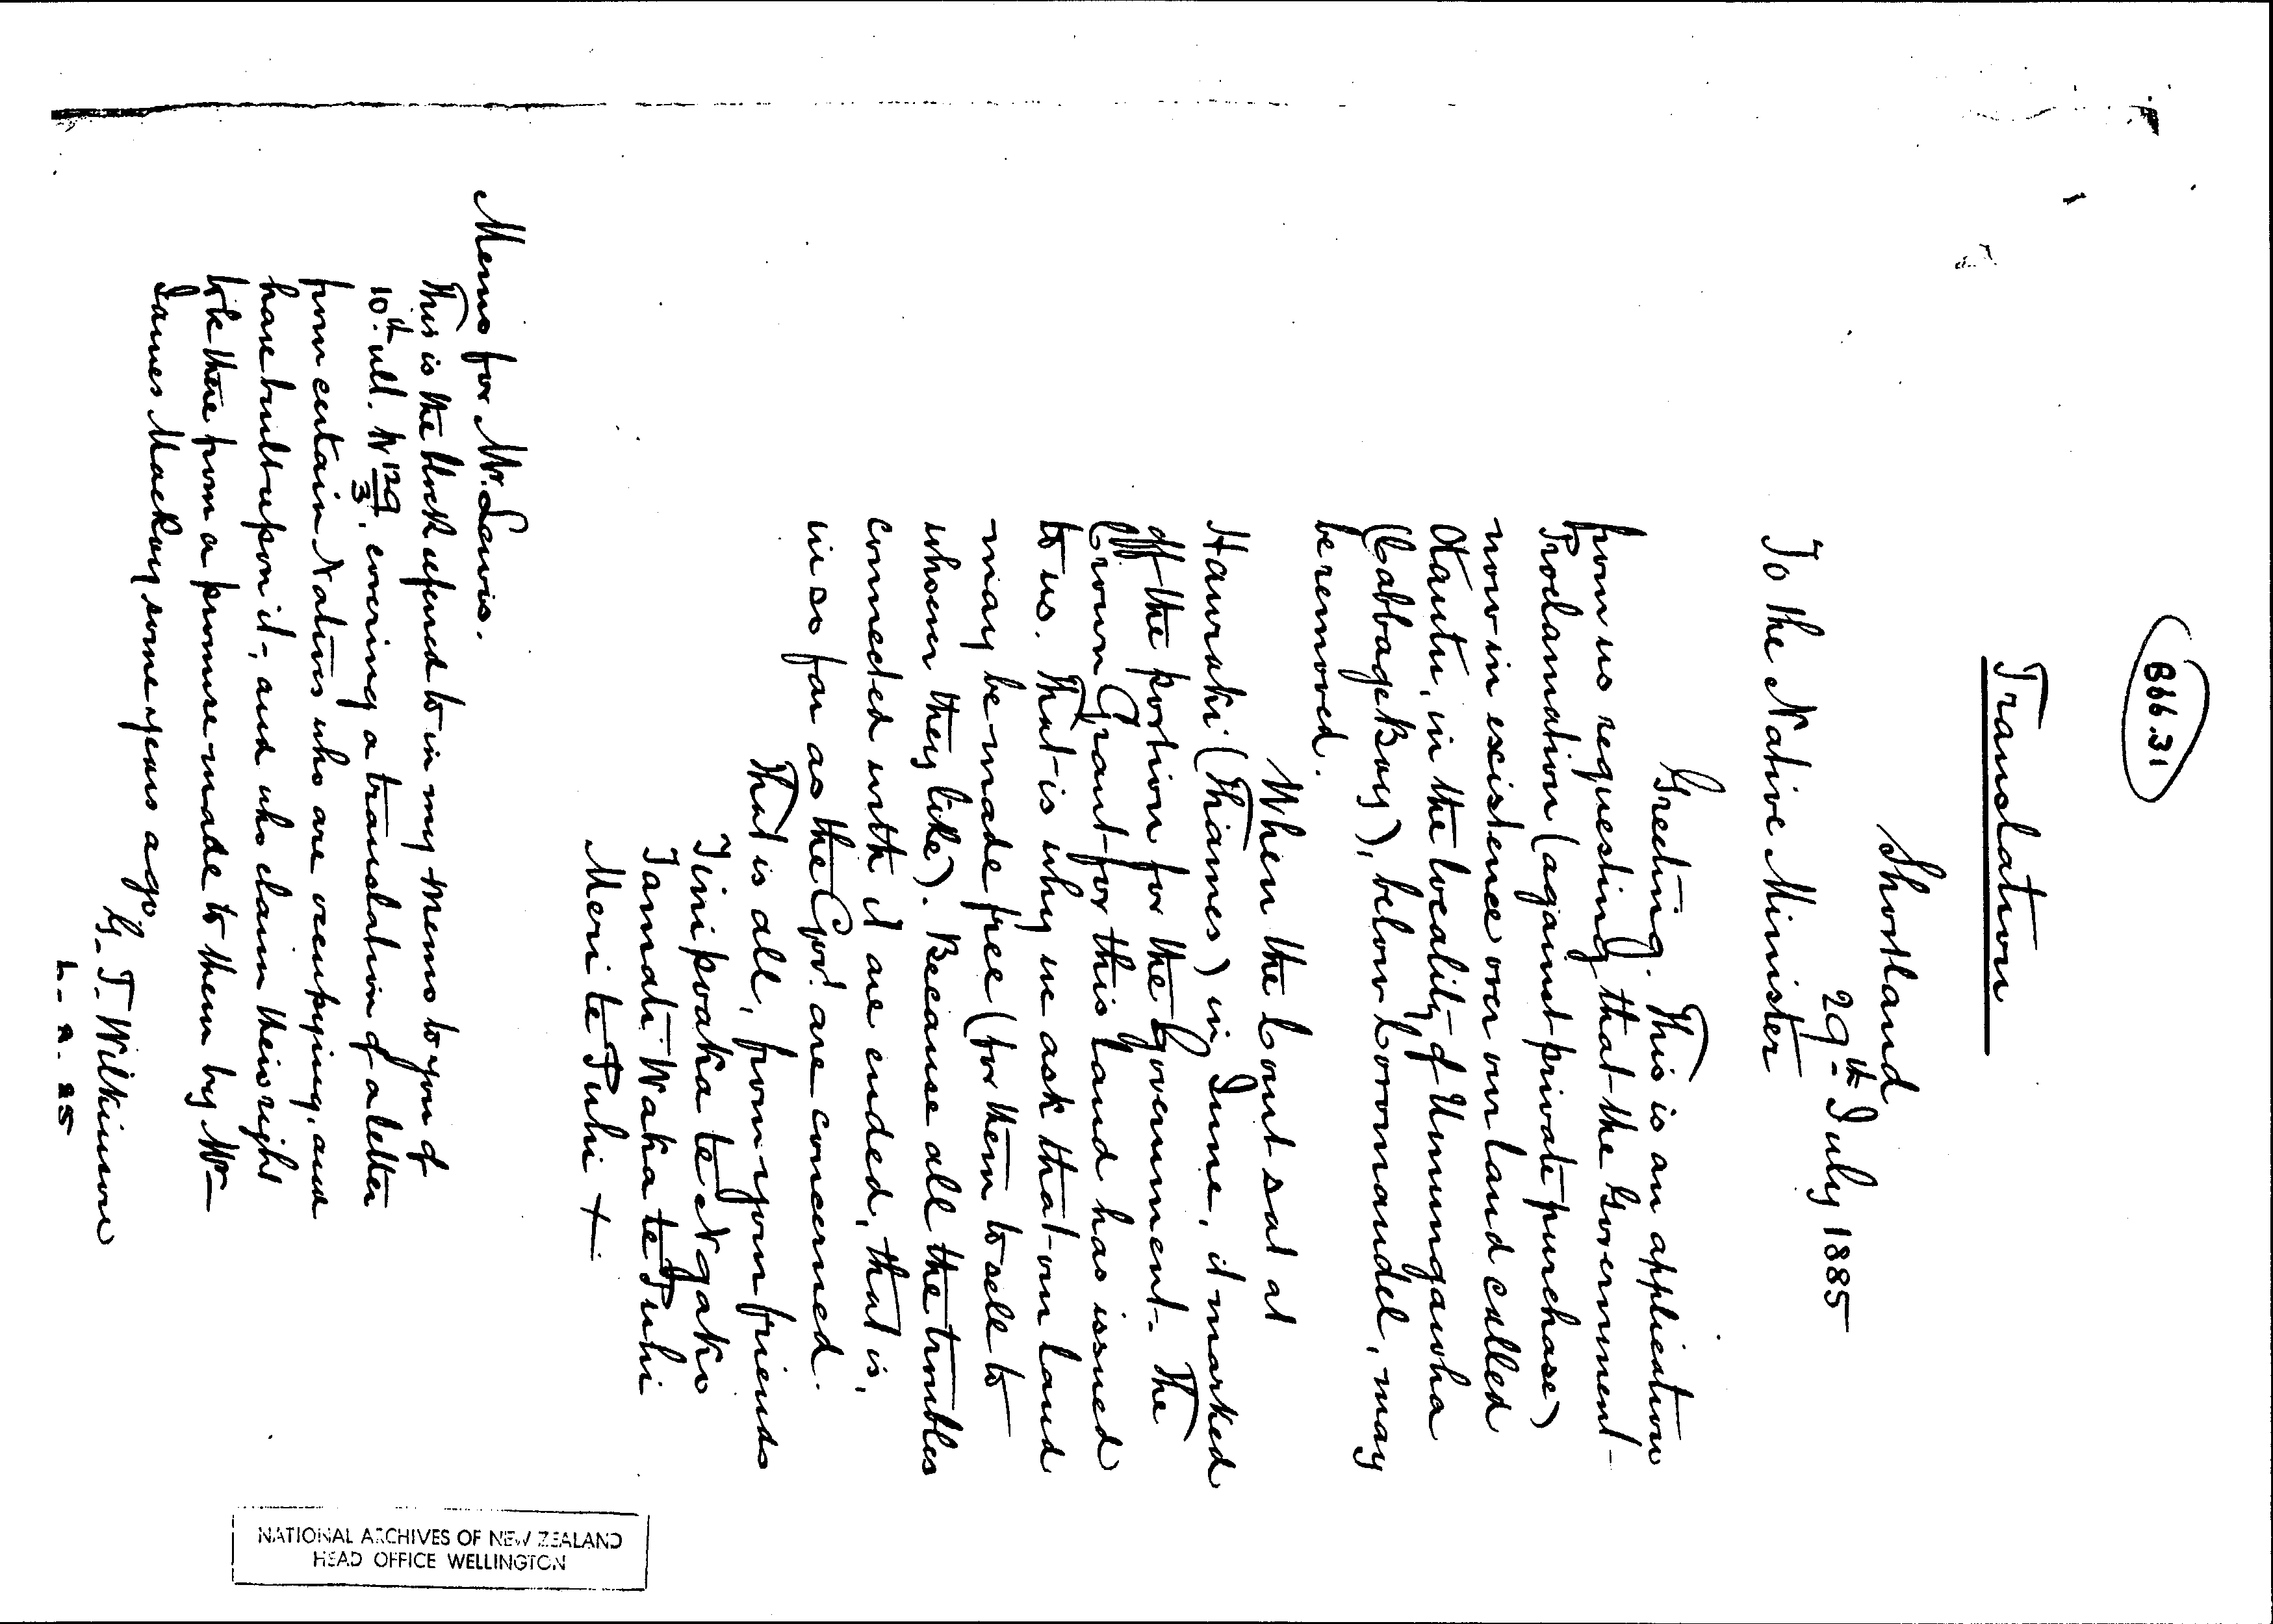 B66.31
Translation
Shortland
29th July 1885
To the Native Minister
Greeting. This is an application
from us requesting that the Government
Proclamation (against private purchase)
now in existence over our land called
Otautu, in the locality of Umungawha
(Cabbage Bay), below Coromandel, may
be removed.
When the Court sat at
Hauraki (Thames) in June, it marked
off the portion for the Government. The
Crown Grant for this land has issued
to us. That is why we ask that our land
may be made free (for them to sell to
whoever they like). Because all the troubles
connected with it are ended, that is,
in so far as the Govt are concerned.
That is all, from your friends
Tinipoaka te Ngako
Tamati Waka te Puhi
Meri te Puhi +
Memo for Mr. Lewis.
This is the block referred to in my memo to you of
10th ult. No 129/3, covering a translation of a letter
from certain Natives who are occupying, and
have built upon it, and who claim their right
to be there from a promise made to them by Mr
James Mackay some years ago
G. T. Wilkinson
85
NATIONAL ARCHIVES OF NEW ZEALAND
HEAD OFFICE WELLINGTON